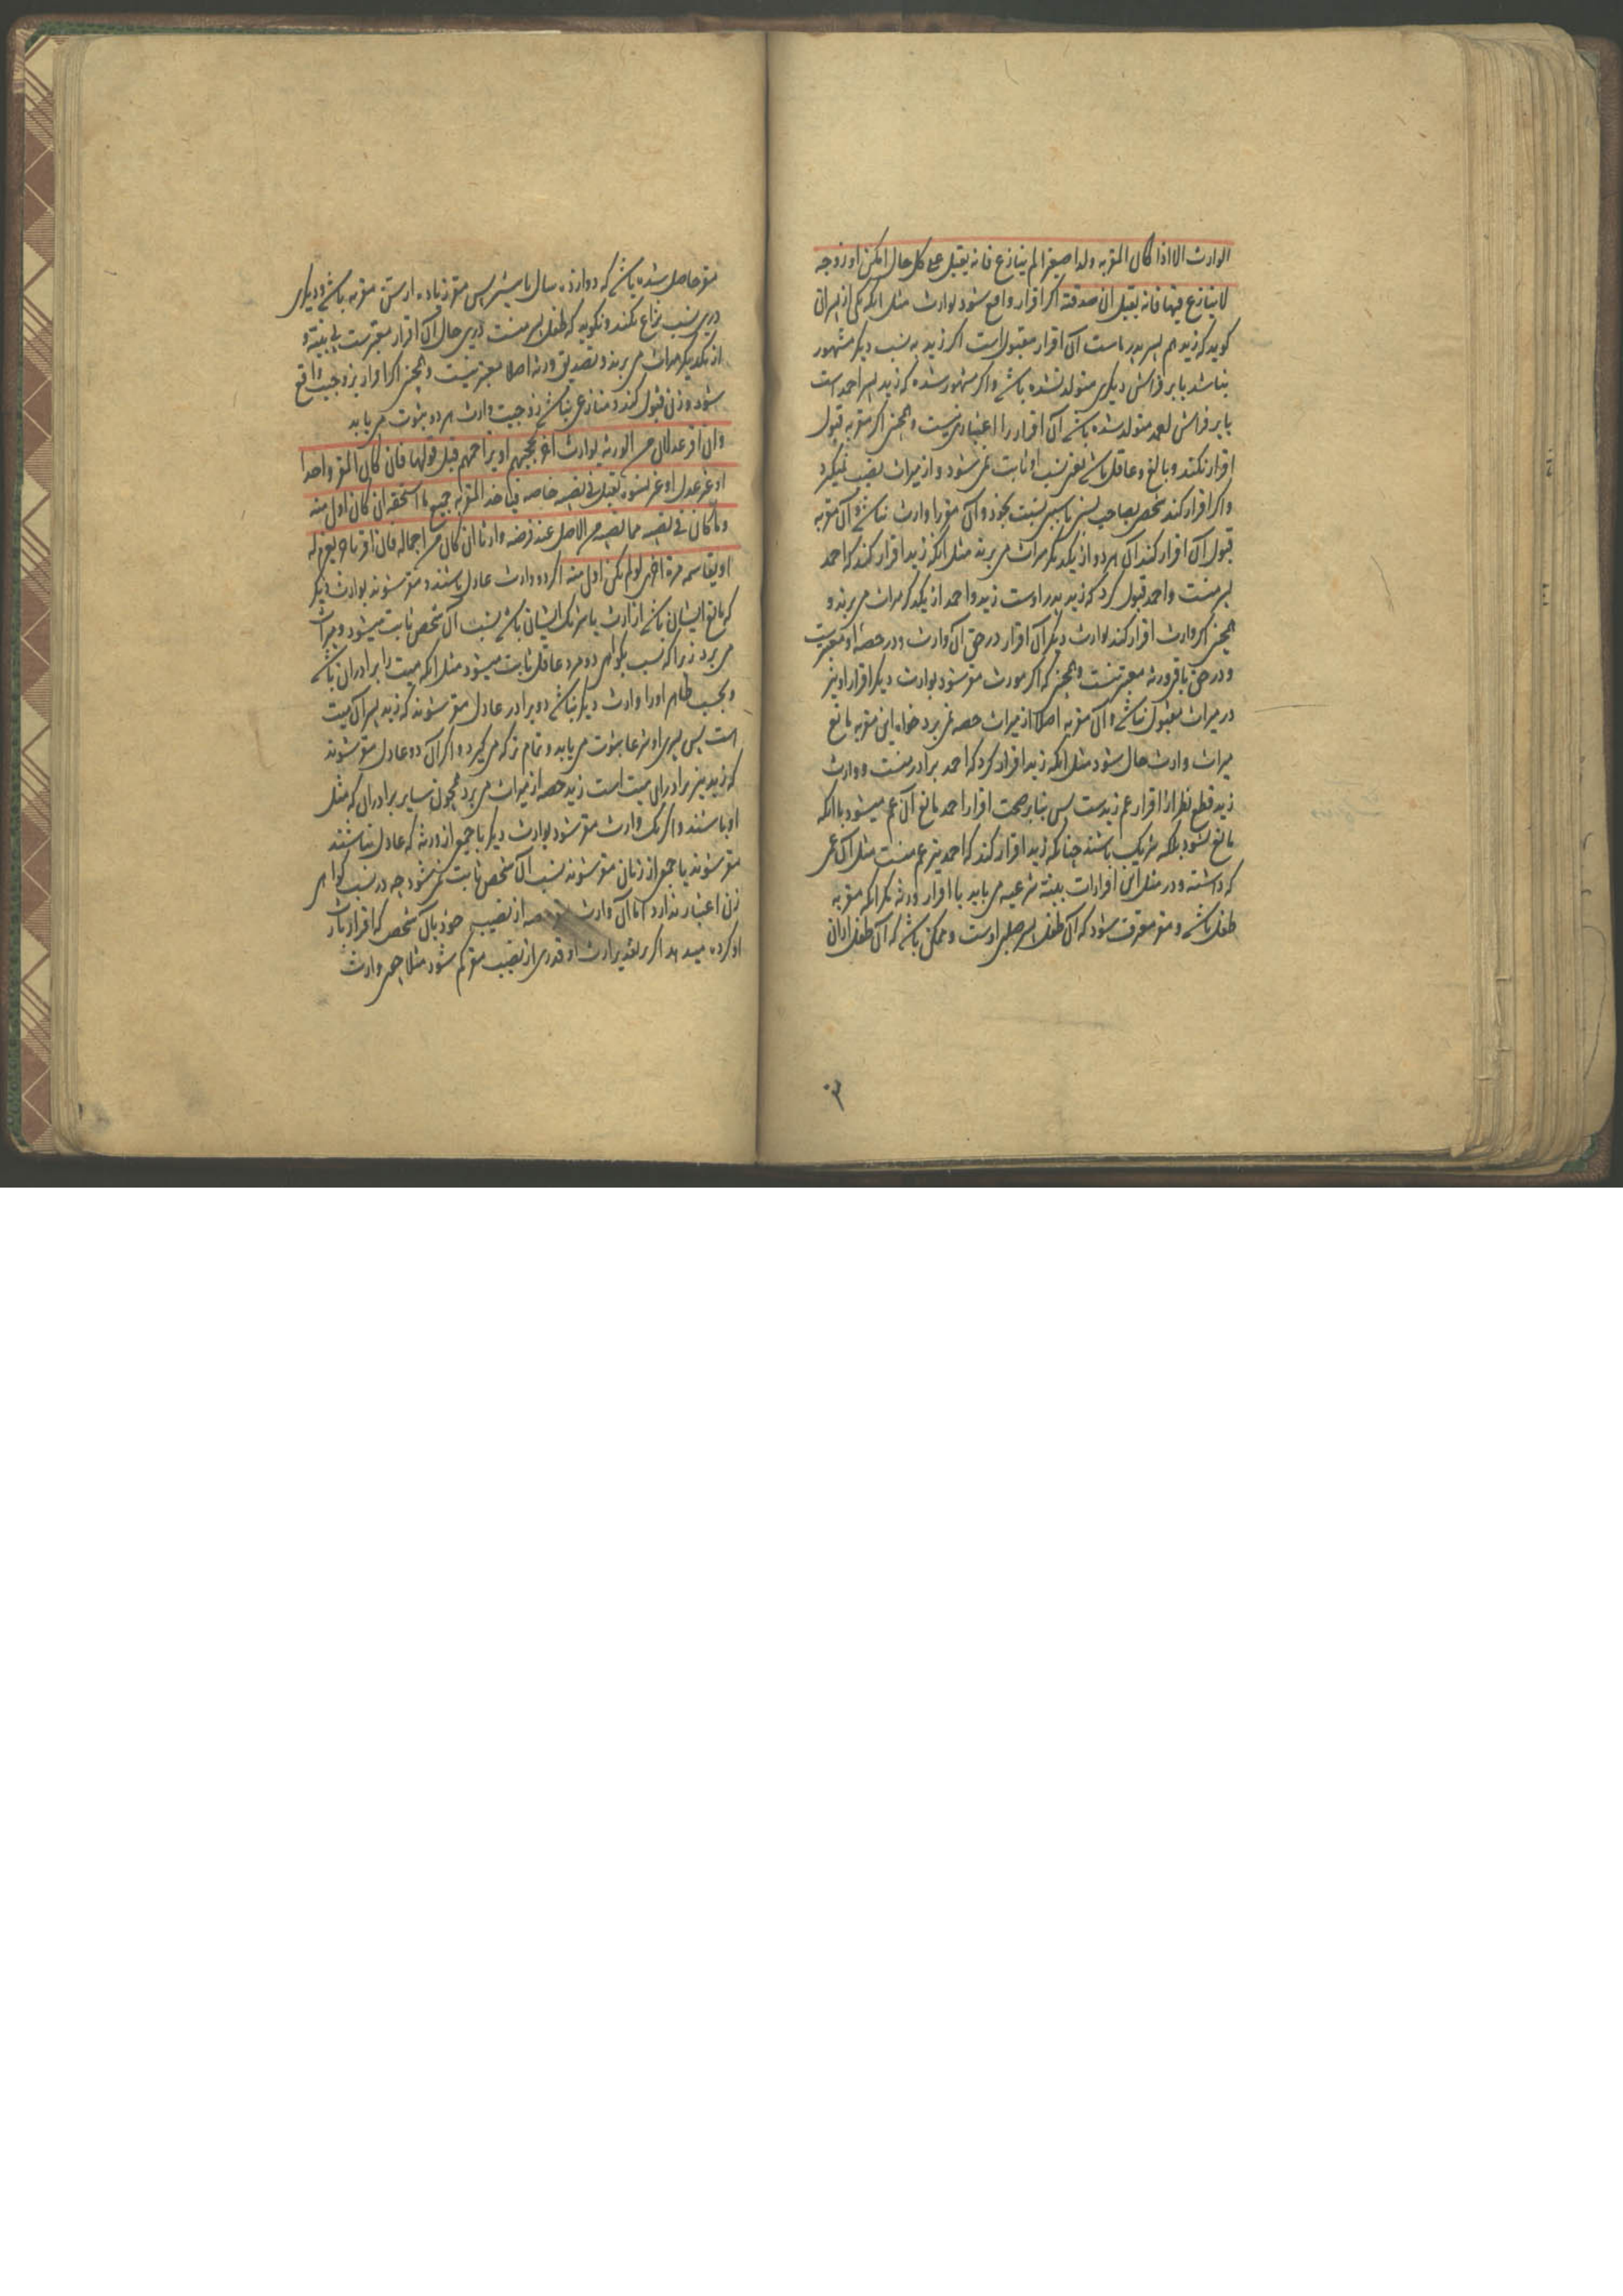 الوارث الا اذا کان المقر به ولدا صغیرا لم ینازع فانه یقبل علی کل حال امکن او زوجه
لا ینازع فیها فانه یقبل ان صدقته اگر اقرار واقع شود بوارث مثل انکه یکی از پسران
کوید که زید هم پسر پدر ماست آن اقرار مقبولست اگر زید به نسب دیگر مشهور
نباشد یا بر فراش دیگری متولد نشده باشد و اگر مشهور شده که زید پسر احمد است
یا بر فراش احمد متولد شده باشد آن اقرار را اعتباری نیست و همچنین اگر مقر به قبول
اقرار نکند و بالغ و عاقل باشد یعنی نسب او ثابت نمی شود و از میراث نصیب نمیگیرد
و اگر اقرار کند شخصی بصاحب نسبی یا سببی نسبت بخود و آن مقر را وارث نباشد و آن مقر به
قبول آن اقرار کند آن هر دو از یکدیگر میراث می برند مثل انکه زید اقرار کند که احمد
پسر منست و احمد قبول کرد که زید پدر اوست زید و احمد از یکدیگر میراث می برند و
همچنین اگر وارث اقرار کند بوارث دیگر آن اقرار در حق آن وارث و در حصه او معتبرست
و در حق باقی ورثه معتبر نیست و همچنین که اگر مورث مقر شود بوارث دیگر اقرار او نیز
در میراث مقبول نباشد و آن مقر به اصلا از میراث حصه نمی برد خواه این مقر به مانع
میراث وارث حال شود مثل انکه زید اقرار کرد که احمد برادر منست و وارث
زید قطع نظر ازا اقرار عم زیدست پس بنا بر صحت اقرار احمد مانع آن عم میشود یا انکه
مانع نشود بلکه شریک باشند چنانکه زید اقرار کند که احمد نیز عم منست مثل آن عمی
که داشته و در مثل این اقرارات بینه شرعیه می باید یا اقرار ورثه مگر انکه مقر به
طفل باشد و مقر معترف شود که آن طفل پسر صلبی اوست و ممکن باشد که آن طفل ازان
مقر حاصل شده باشد که دوازده سال یا بیشتر سن مقر زیاده از سن مقر به باشد و دیگری
درین نسب نزاع نکند و نگوید که طفل پسر منست درین حال آن اقرار معتبرست بی بینه و
از یکدیگر میراث می برند و تصدیق ورثه اصلا معتبر نیست و همچنین اگر اقرار بزوجیت واقع
شود و زن قبول کند و منازعی نباشد زوجیت و ارث هر دو بثبوت می یابد
وان اقر عدلان من الورثه بوارث اخر یحجبهم او یزاحمهم قبل قولهما فان کان المقر واحدا
او غیر عدل او غیر نسوه یقبل فی نصیبه خاصه فیاخذ المقر به جمیع ما استحقه ان کان اولی منه
وما کان فی نصیبه مما نصیبه من الاصل عند فرضه وارثا ان کان من اجماله فان اقر باخر یغرم له
او یقاسمه مرة اخری لو لم یکن اولی منه اگر دو وارث عادل باشند و مقر شوند بوارث دیگر
که مانع ایشان باشد از ارث یا شریک ایشان باشد نسب آن شخص ثابت میشود و میراث
می برد زیرا که نسب بگواهی دو مرد عاقل ثابت میشود مثل انکه میت را برادران باشد
و بحسب ظاهر او را وارث دیگر نباشد دو برادر عادل مقر شوند که زید پسر آن میت
است پس پسری او شرعا بثبوت می یابد و تمام ترکه می گیرد و اگر آن دو عادل مقر شوند
که زید نیز برادر این میت است زید حصه از میراث می برد همچون سایر برادران که مثل
او باشند و اگر یک وارث مقر شود بوارث دیگر یا جمیع از ورثه که عادل نباشند
مقر شوند یا جمعی از زنان مقر شوند نسب آن شخص ثابت نمی شود چه در نسب گواهی
زن اعتبار ندارد اما آن وارث حصه از نصیب خود بآن شخص که اقرار بارث
او کرده میدهد اگر بر تقدیر ارث او قدری از نصیب مقر کم شود مثلا چون وارث
مقر